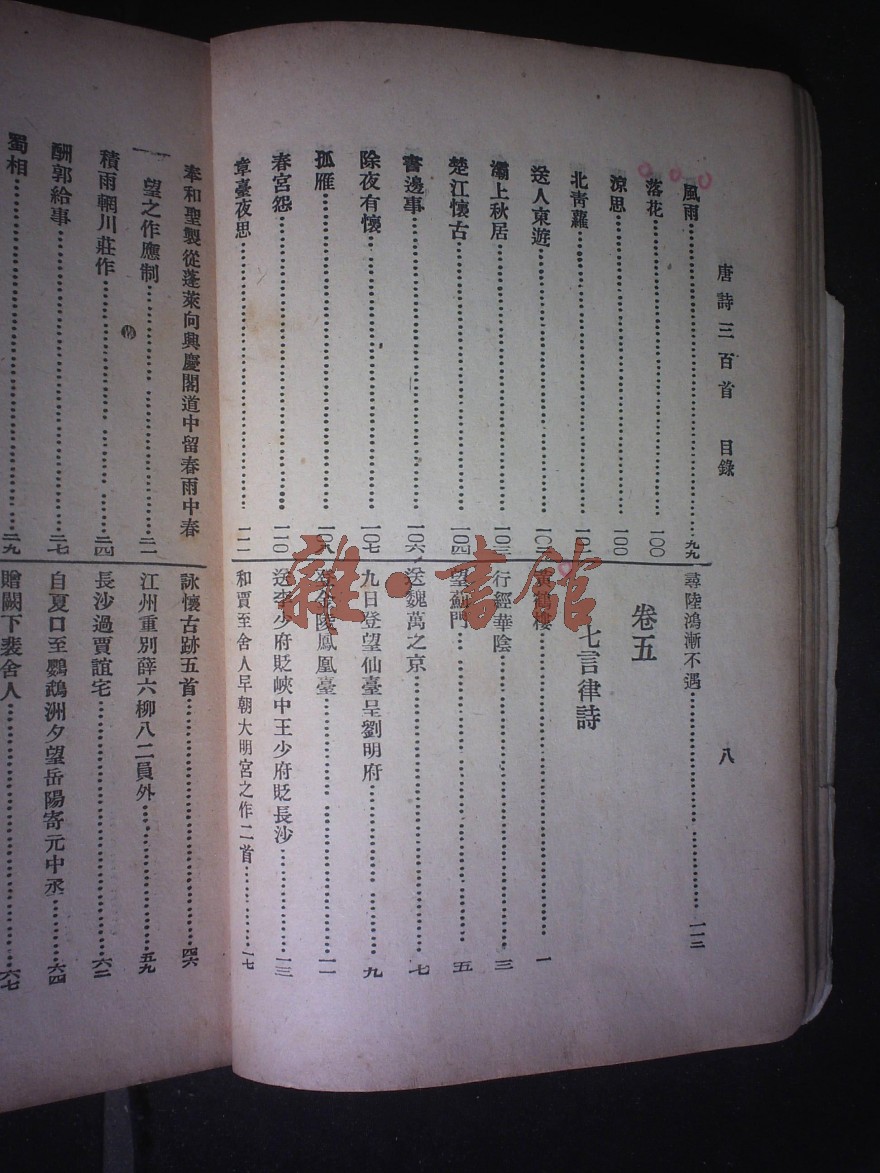 唐詩三百首 目錄 八
風雨 九九
落花 一〇〇
涼思 一〇〇
北青蘿
送人東遊
灞上秋居 一〇三
楚江懷古 一〇四
書邊事 一〇六
除夜有懷 一〇七
孤雁 一〇八
春宮怨 一一〇
章臺夜思 一一一
尋陸鴻漸不遇 一一二
卷五
七言律詩
黃鶴樓 一
行經華陰 三
望薊門 五
送魏萬之京 七
九日登望仙臺呈劉明府 九
登金陵鳳凰臺 一一
送李少府貶峽中王少府貶長沙 一三
和賈至舍人早朝大明宮之作二首 一七
奉和聖製從蓬萊向興慶閣道中留春雨中春
望之作應制 二一
積雨輞川莊作 二四
酬郭給事 二七
蜀相 二九
詠懷古跡五首 四六
江州重別薛六柳八二員外 五九
長沙過賈誼宅 六二
自夏口至鸚鵡洲夕望岳陽寄元中丞 六四
贈闕下裴舍人 六七
雜·書館